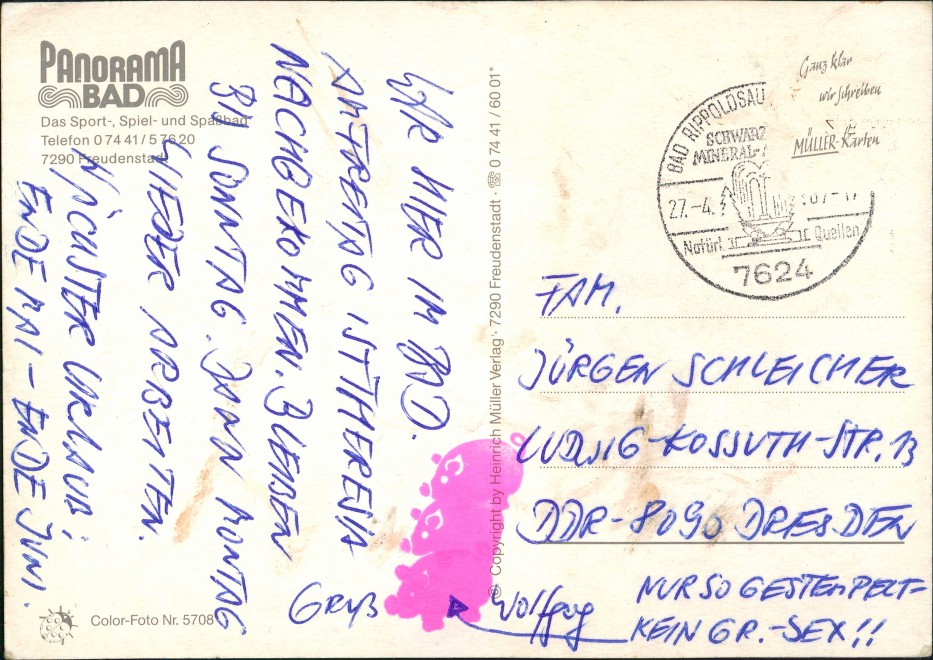 PANORAMA
BAD
Das Sport-, Spiel- und Spaßbad
Telefon 0 74 41 / 5 76 20
7290 Freudenstadt
WIR HIER IM BAD.
AM FREITAG IST THERESIA
NACHGEKOMMEN. BLEIBEN
BIS SONNTAG. DANN MONTAG
WIEDER ARBEITEN.
NÄCHSTER URLAUB:
ENDE MAI - ENDE JUNI.
Gruß Wolfgang
Color-Foto Nr. 5708
© Copyright by Heinrich Müller Verlag · 7290 Freudenstadt · ☎ 0 74 41 / 60 01*
Ganz klar
wir schreiben
MÜLLER-Karten
BAD RIPPOLDSAU
SCHWARZ
MINERAL-
27.-4.
Natürl.
Quellen
7624
FAM.
JÜRGEN SCHLEICHER
LUDWIG-KOSSUTH-STR. 13
DDR-8090 DRESDEN
NUR SO GESTEMPELT-
KEIN GR.-SEX!!